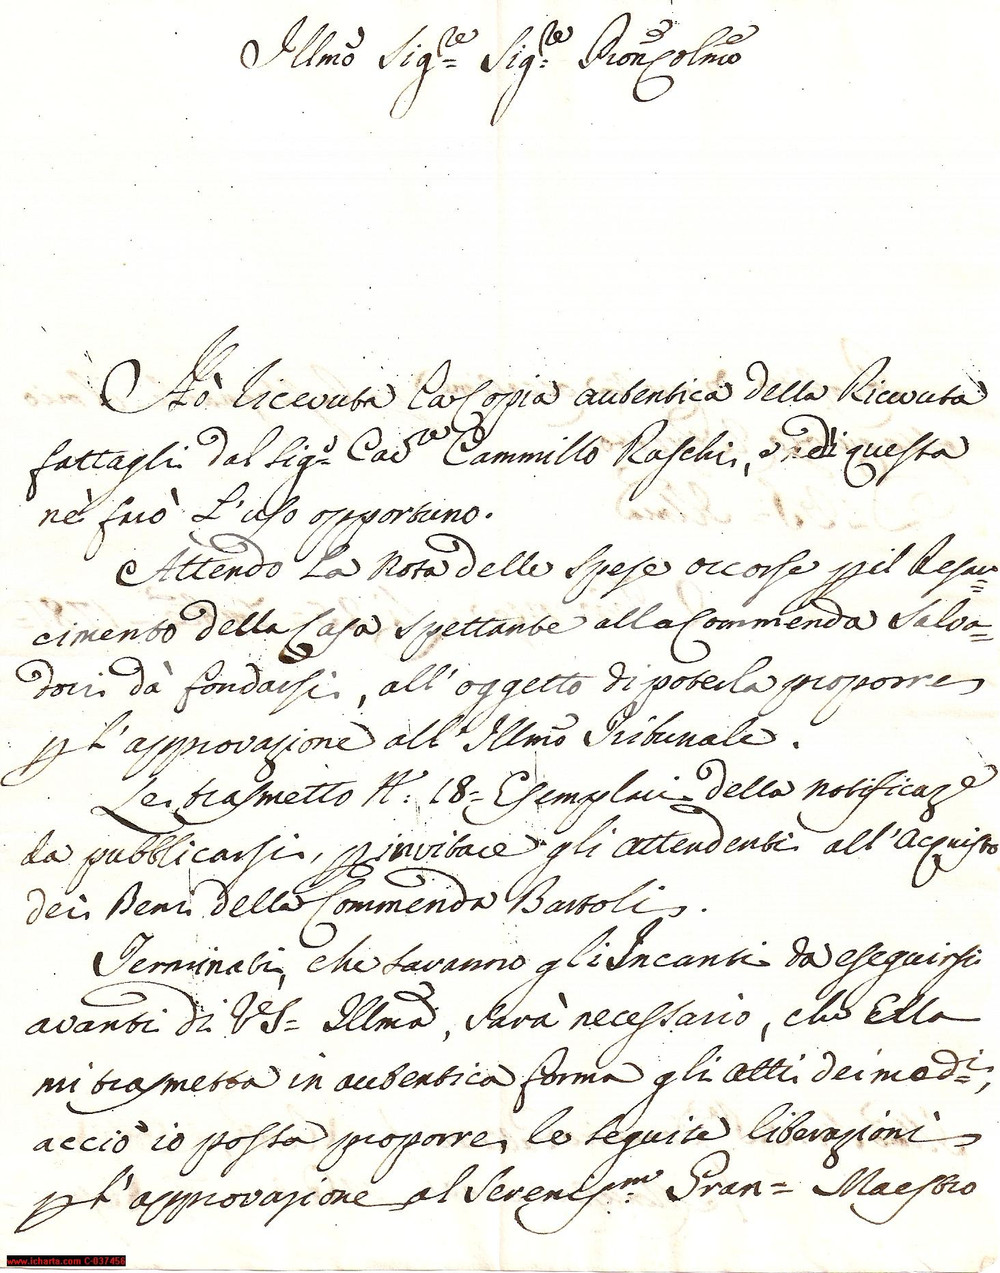 Illmo Sigre Sigre Pron Colmo
Hò ricevuta la Copia autentica della Ricevuta
fattagli dal Sigr Cavre Cammillo Raschi, e di questa
nè farò l'uso opportuno.
Attendo la nota delle spese occorse p il Resar=
cimento della Casa spettante alla Commenda Salva=
dori dà fondarsi, all'oggetto di poterla proporre
p l'approvazione all'Illmo Tribunale.
Le trasmetto N. 18= Esemplari della notificaze
da pubblicarsi, p invitare gli attendenti all'Acquisto
dei Beni della Commenda Bartoli.
Terminati, che saranno gli Incanti da eseguirsi
avanti di VS= Illma, sarà necessario, che Ella
mi trasmetta in autentica forma gli atti dei medi=,
acciò io possa proporre le seguite liberazioni
p l'approvazione al Serenismo Gran= Maestro
www.icharta.com C-037456